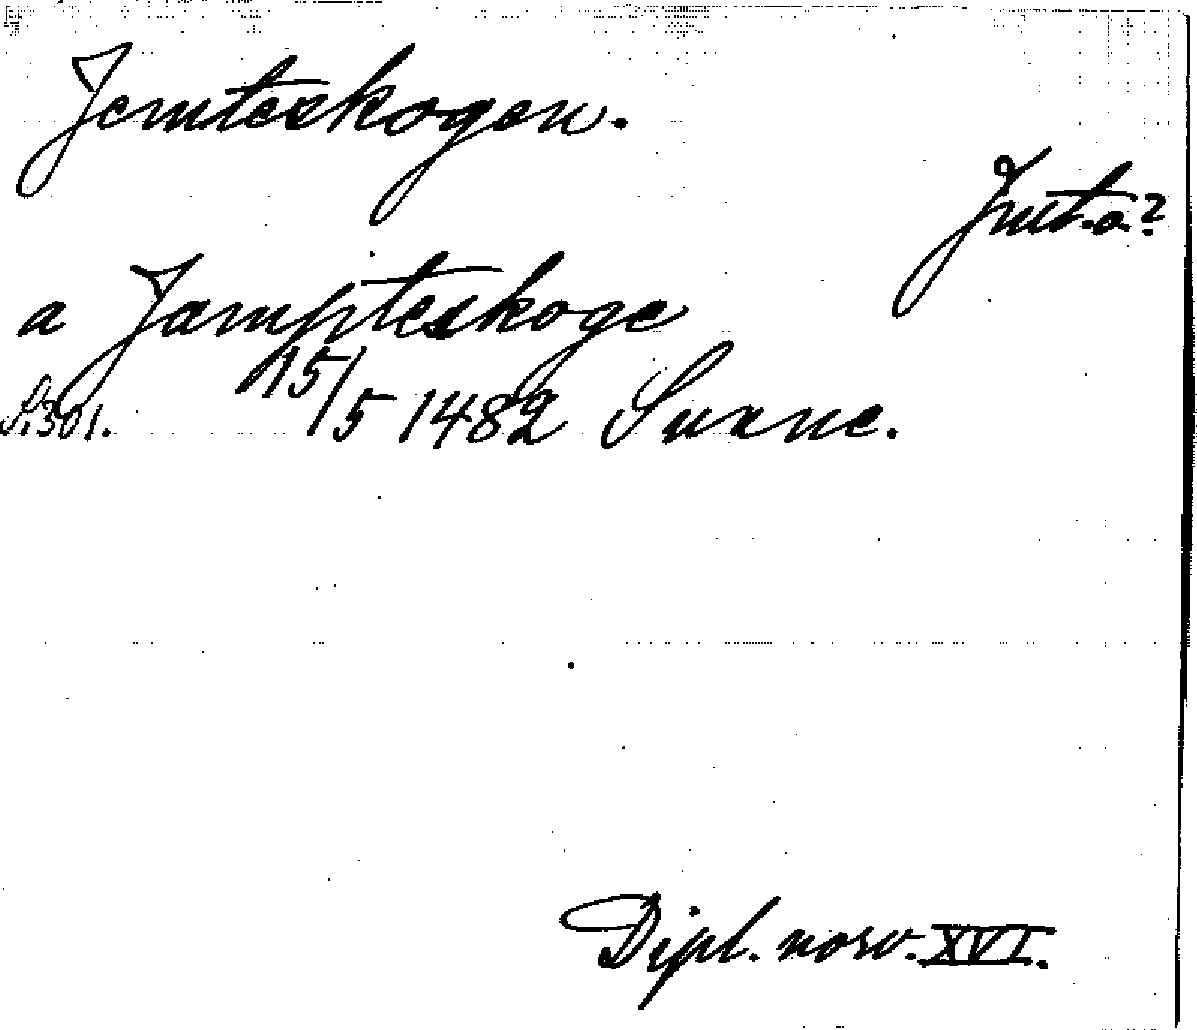 Jemteskogen.
Jmt.a?
a Jampteskoge
S.301. 15/5 1482 Sunne.
Dipl. norv. XVI.